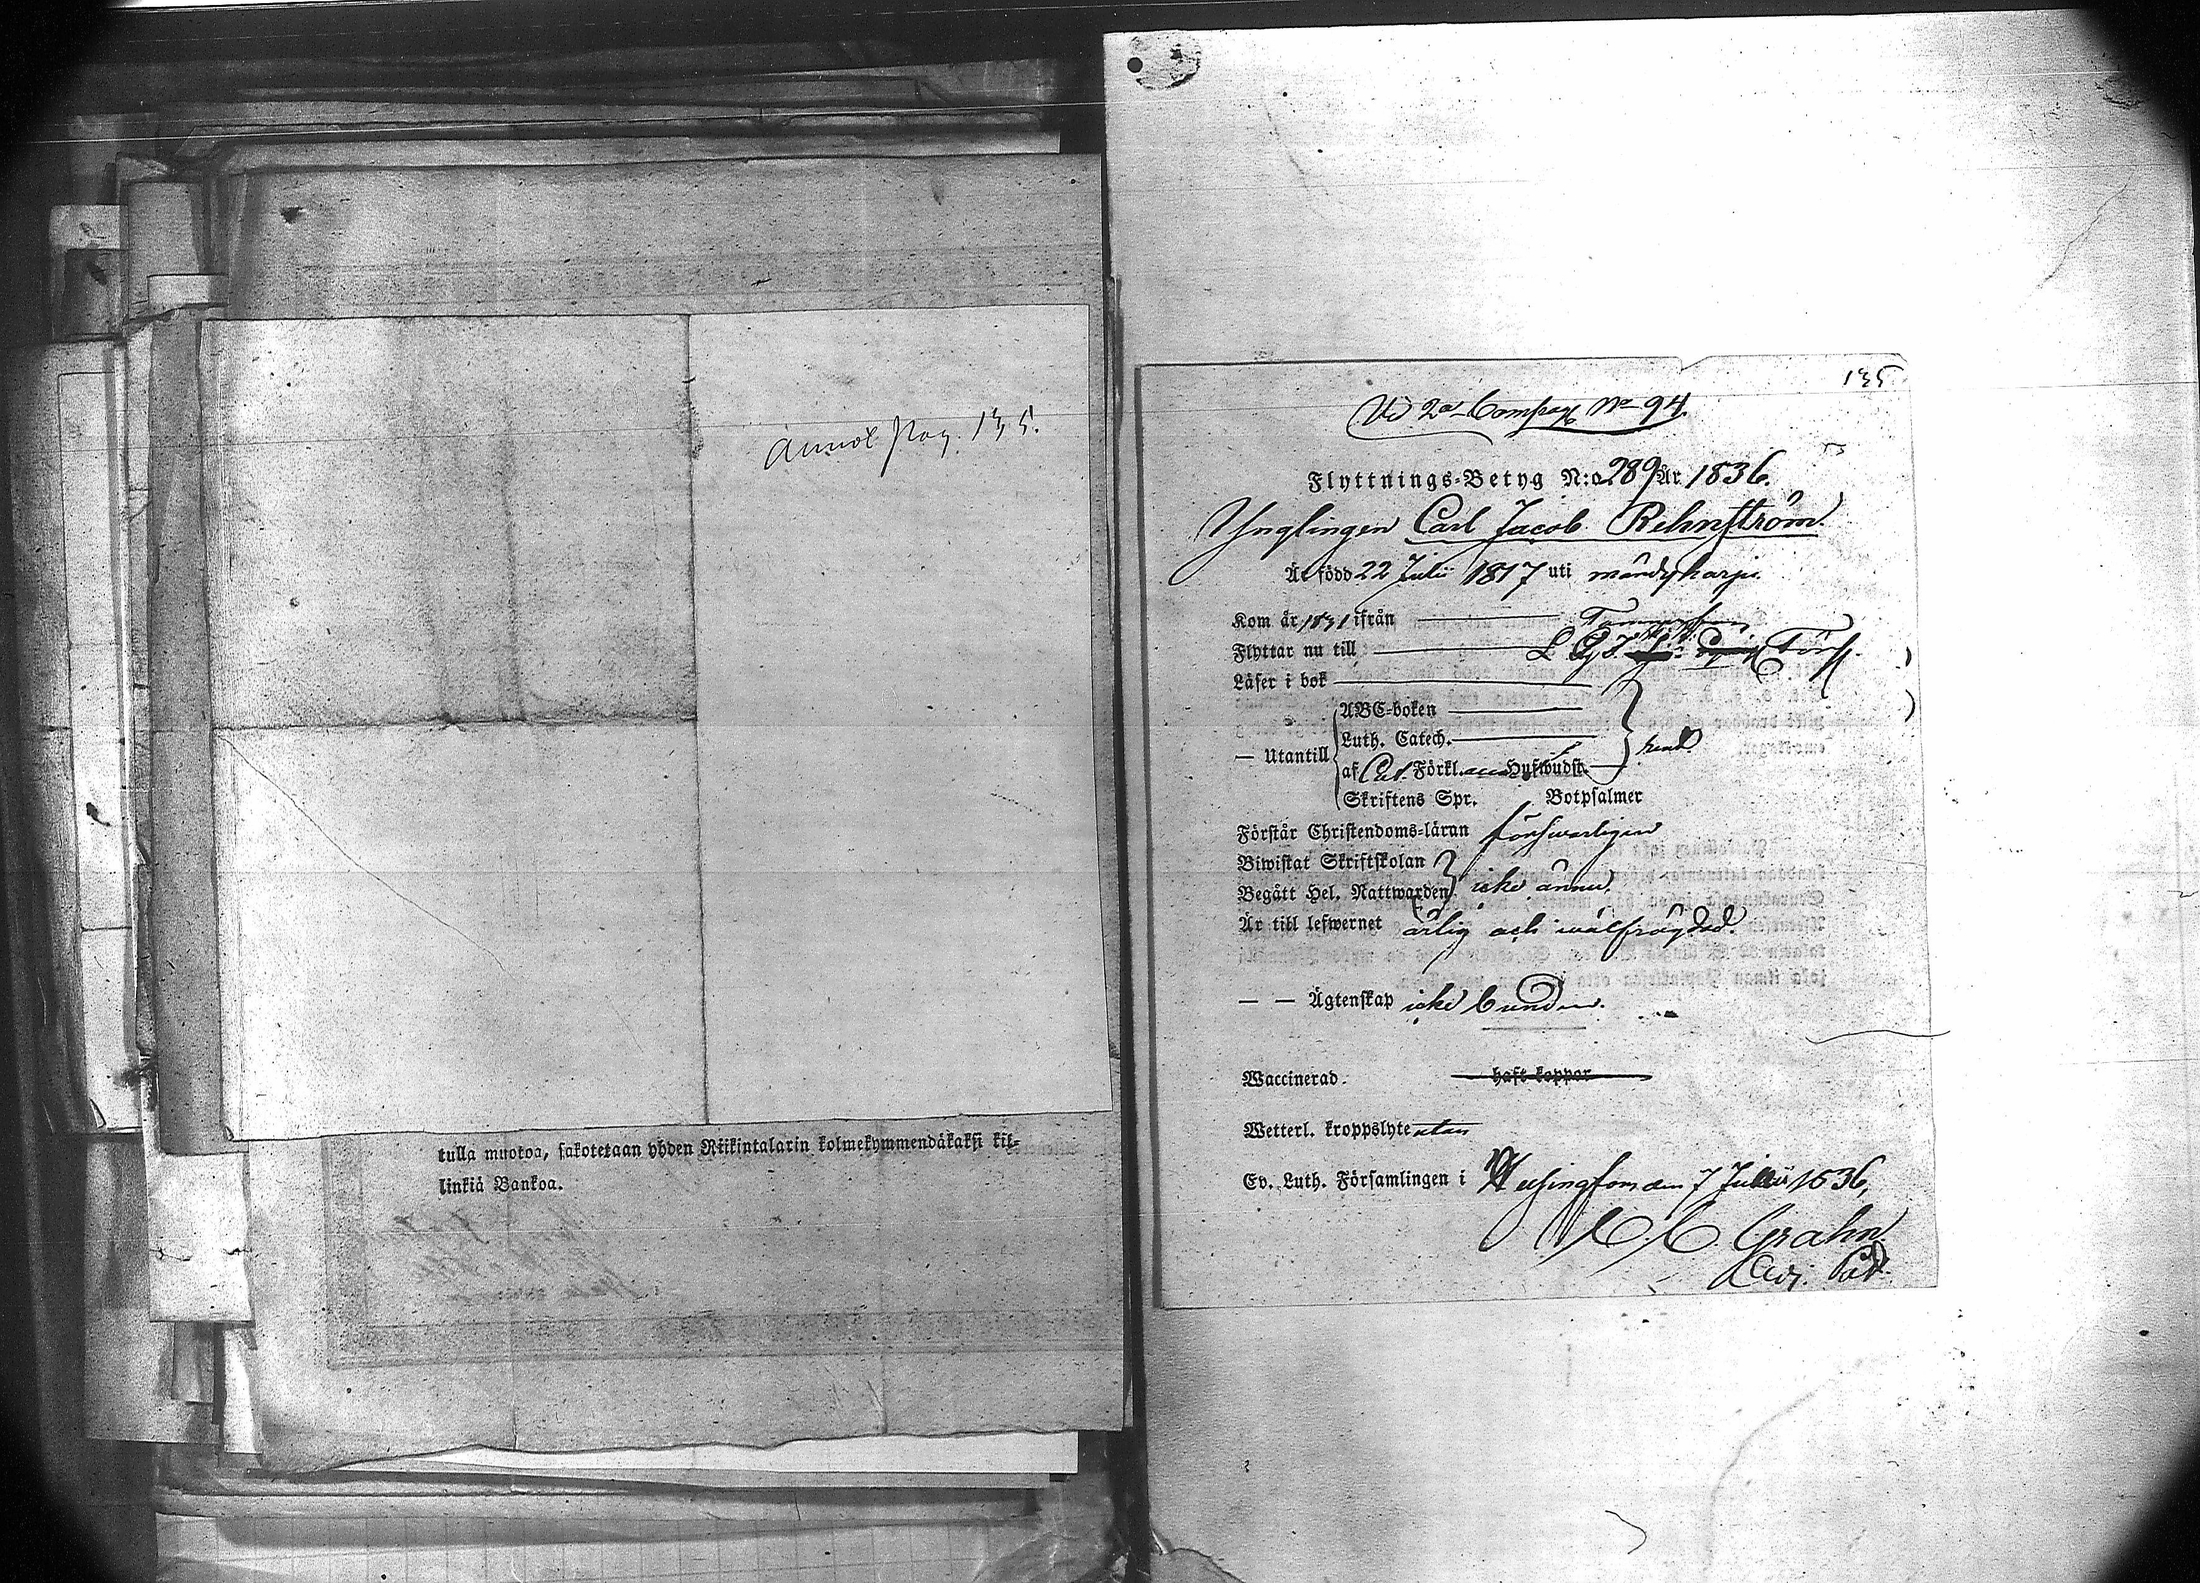 Annot pag. 135.
tulla muotoa, sakotetaan yhden Riikintalarin kolmekymmendäkaksi kil-
linkiä Bankoa.
135
Wid 2a Compag No 94.
Flyttnings-Betyg N:o 289 År 1836.
Ynglingen Carl Jacob Rehnström
Är född 22 Julii 1817 uti mändyharju
Kom år 1831 ifrån Tammerfors
Flyttar nu till
Läser i bok
ABC-boken
Luth. Catech.
— Utantill
af Förkl. Hustwudst.
Skriftens Spr. Botpsalmer
Förstår Christendoms-läran försvarligen
Biwistat Skriftskolan
Begått Hel. Nattwarden icke ännu.
Är till lefwernet ärlig och wälfrägdad.
— — Ägtenskap icke bunden.
Waccinerad. haft koppor
Wetterl. kroppslyte utan
Ev. Luth. Församlingen i Helsingfors den 7 Junii 1836,
C. Grahn
Adj. Past.